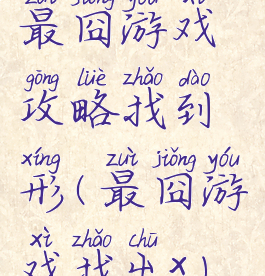 zuì jiǒng yóu xì
最囧游戏
gōng lüè zhǎo dào
攻略找到
xíng zuì jiǒng yóu
形(最囧游
xì zhǎo chū
戏找出x)